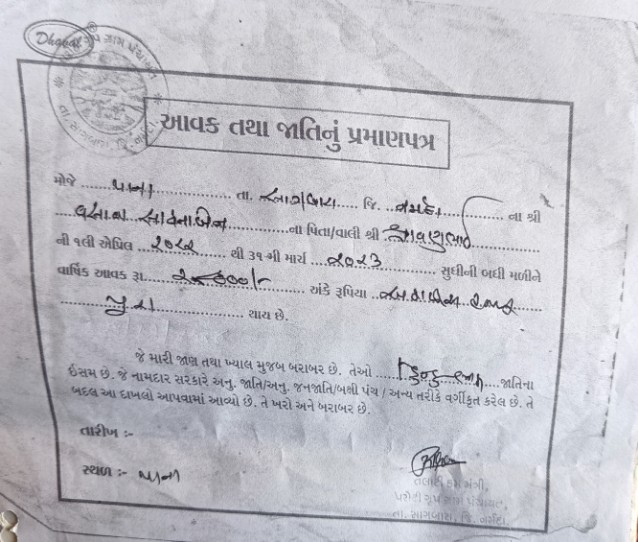 Dhabal
આવક તથા જાતિનું પ્રમાણપત્ર
મોજે ........ પાના ........ તા. સાગબારા જિ. નર્મદા ........ ના શ્રી
વસાવા ........ ના પિતા/વાલી શ્રી શ્રાવણભાઈ
ની ૧લી એપ્રિલ ૨૦૨૨ થી ૩૧-મી માર્ચ ૨૦૨૩ સુધીની બધી મળીને
વાર્ષિક આવક રૂા. ૨૮૦૦૦/- અંકે રૂપિયા અઠાવીસ હજાર
પુરા ........ થાય છે.
જે મારી જાણ તથા ખ્યાલ મુજબ બરાબર છે. તેઓ ........ જાતિના
ઈસમ છે. જે નામદાર સરકારે અનુ. જાતિ/અનુ. જનજાતિ/બક્ષી પંચ / અન્ય તરીકે વર્ગીકૃત કરેલ છે. તે
બદલ આ દાખલો આપવામાં આવ્યો છે. તે ખરો અને બરાબર છે.
તારીખ :-
સ્થળ :- પાના
તલાટી કમ મંત્રી,
ગ્રુપ ગ્રામ પંચાયત,
તા. સાગબારા, જિ. નર્મદા